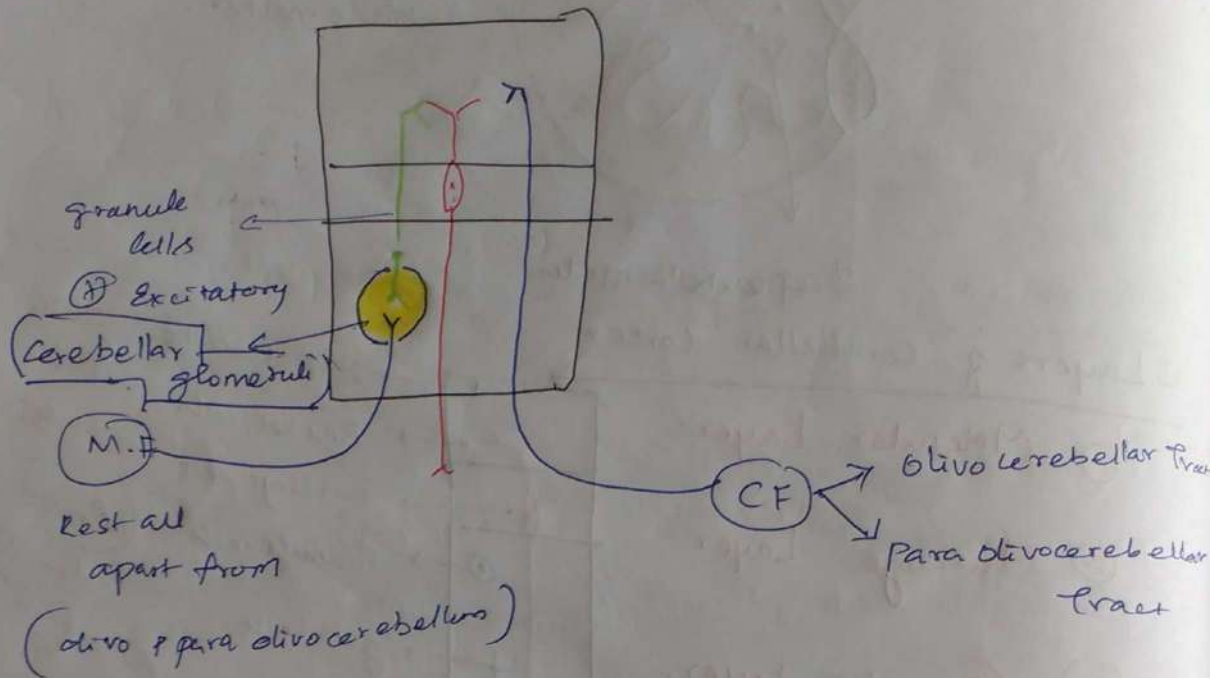 granule
cells
(+) Excitatory
Cerebellar
glomeruli
M.F
Rest all
apart from
(olivo & para olivocerebellum)
CF
Olivo cerebellar Tract
Para olivocerebellar
Tract